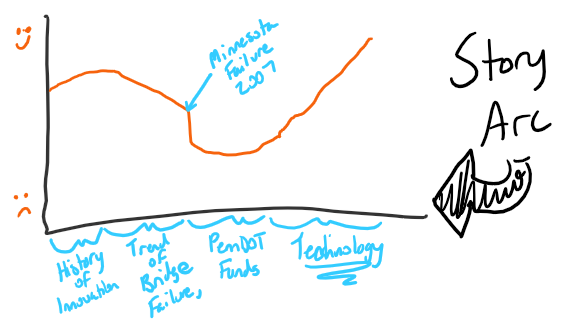 Minnesota
Failure
2007
Story
Arc
History
of
Innovation
Trend
of
Bridge
Failure,
PennDOT
Funds
Technology